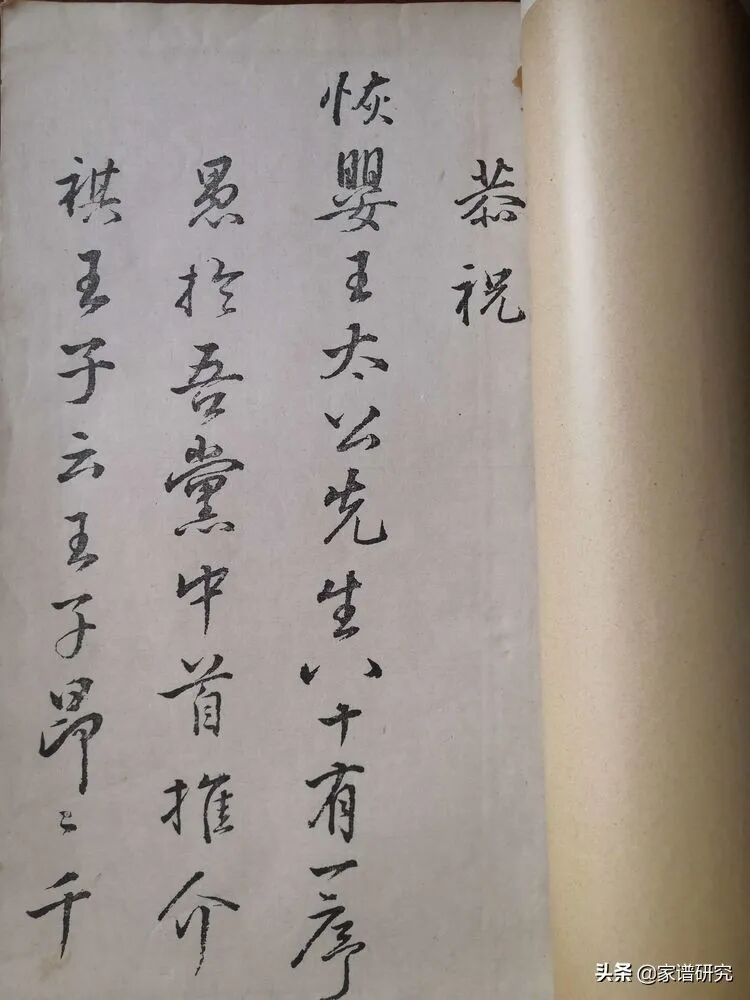 恭祝
恢嬰王太公先生八十有一序
愚於吾黨中首推介
祺王子云王子昂〻千
头条@家谱研究